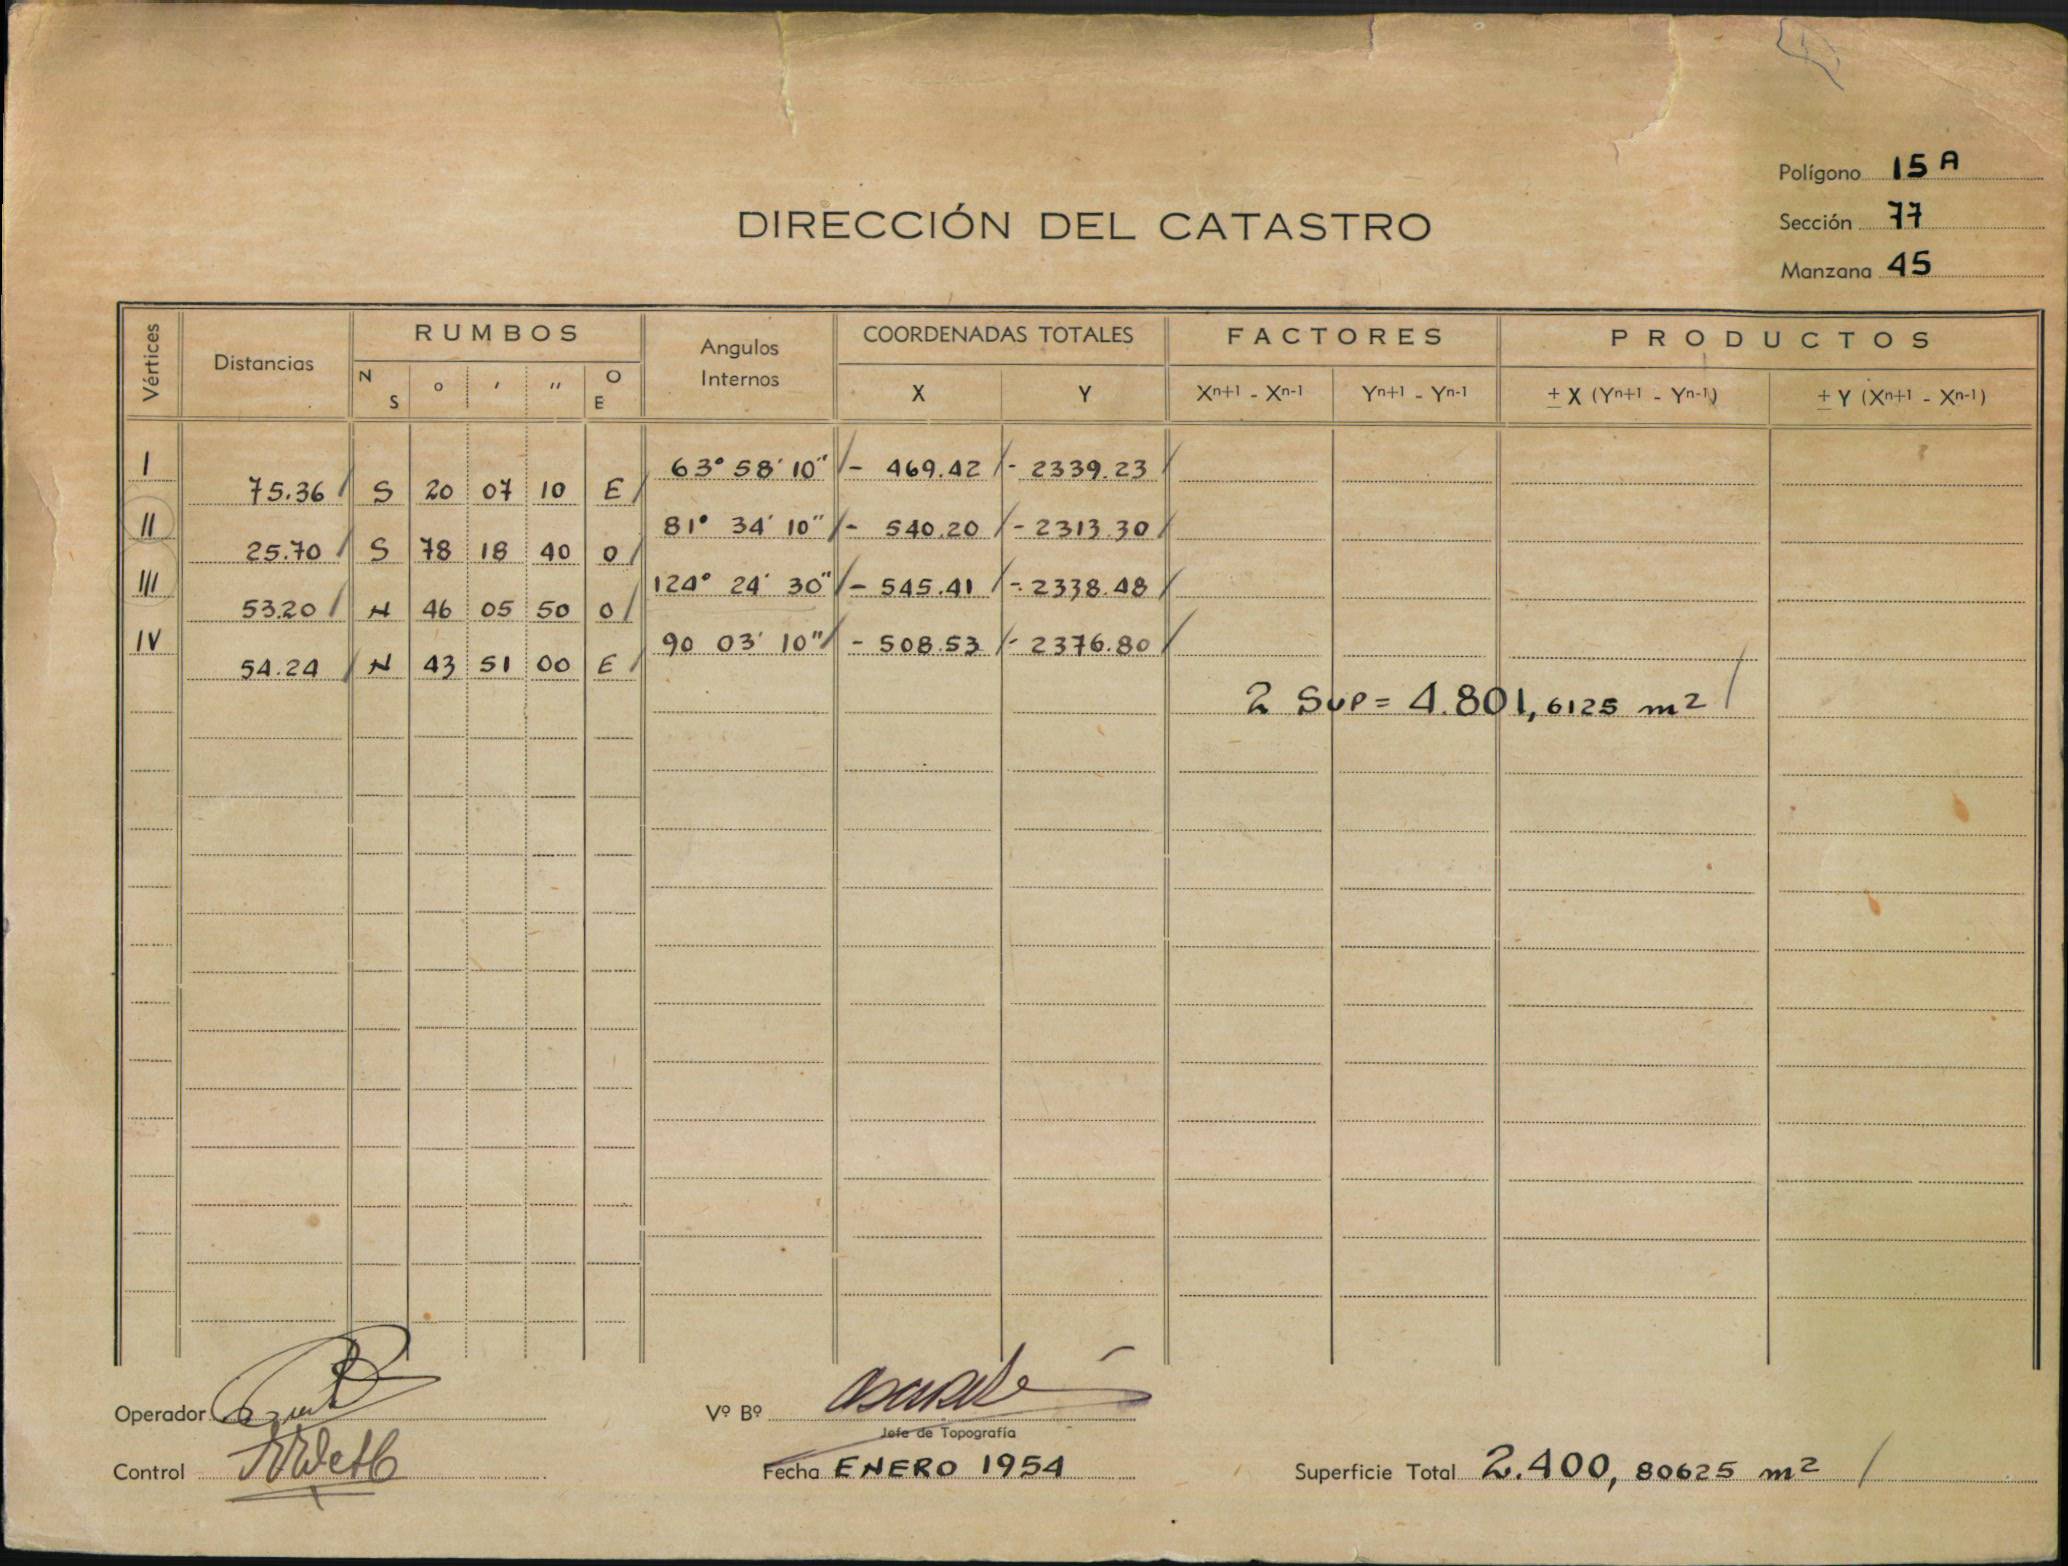 Polígono 15 A
Sección 77
Manzana 45
DIRECCIÓN DEL CATASTRO
Vértices
Distancias
RUMBOS
N S
o ' "
O E
Angulos Internos
COORDENADAS TOTALES
X Y
FACTORES
Xn+1 - Xn-1 Yn+1 - Yn-1
PRODUCTOS
± X (Yn+1 - Yn-1) ± Y (Xn+1 - Xn-1)
I 63° 58' 10" - 469.42 - 2339.23
75.36 S 20 07 10 E
II 81° 34' 10" - 540.20 - 2313.30
25.70 S 78 18 40 O
III 124° 24' 30" - 545.41 - 2338.48
53.20 N 46 05 50 O
IV 90 03' 10" - 508.53 - 2376.80
54.24 N 43 51 00 E
2 Sup = 4.801,6125 m2
Operador
Vº Bº
Jefe de Topografía
Control
Fecha ENERO 1954
Superficie Total 2.400, 80625 m2